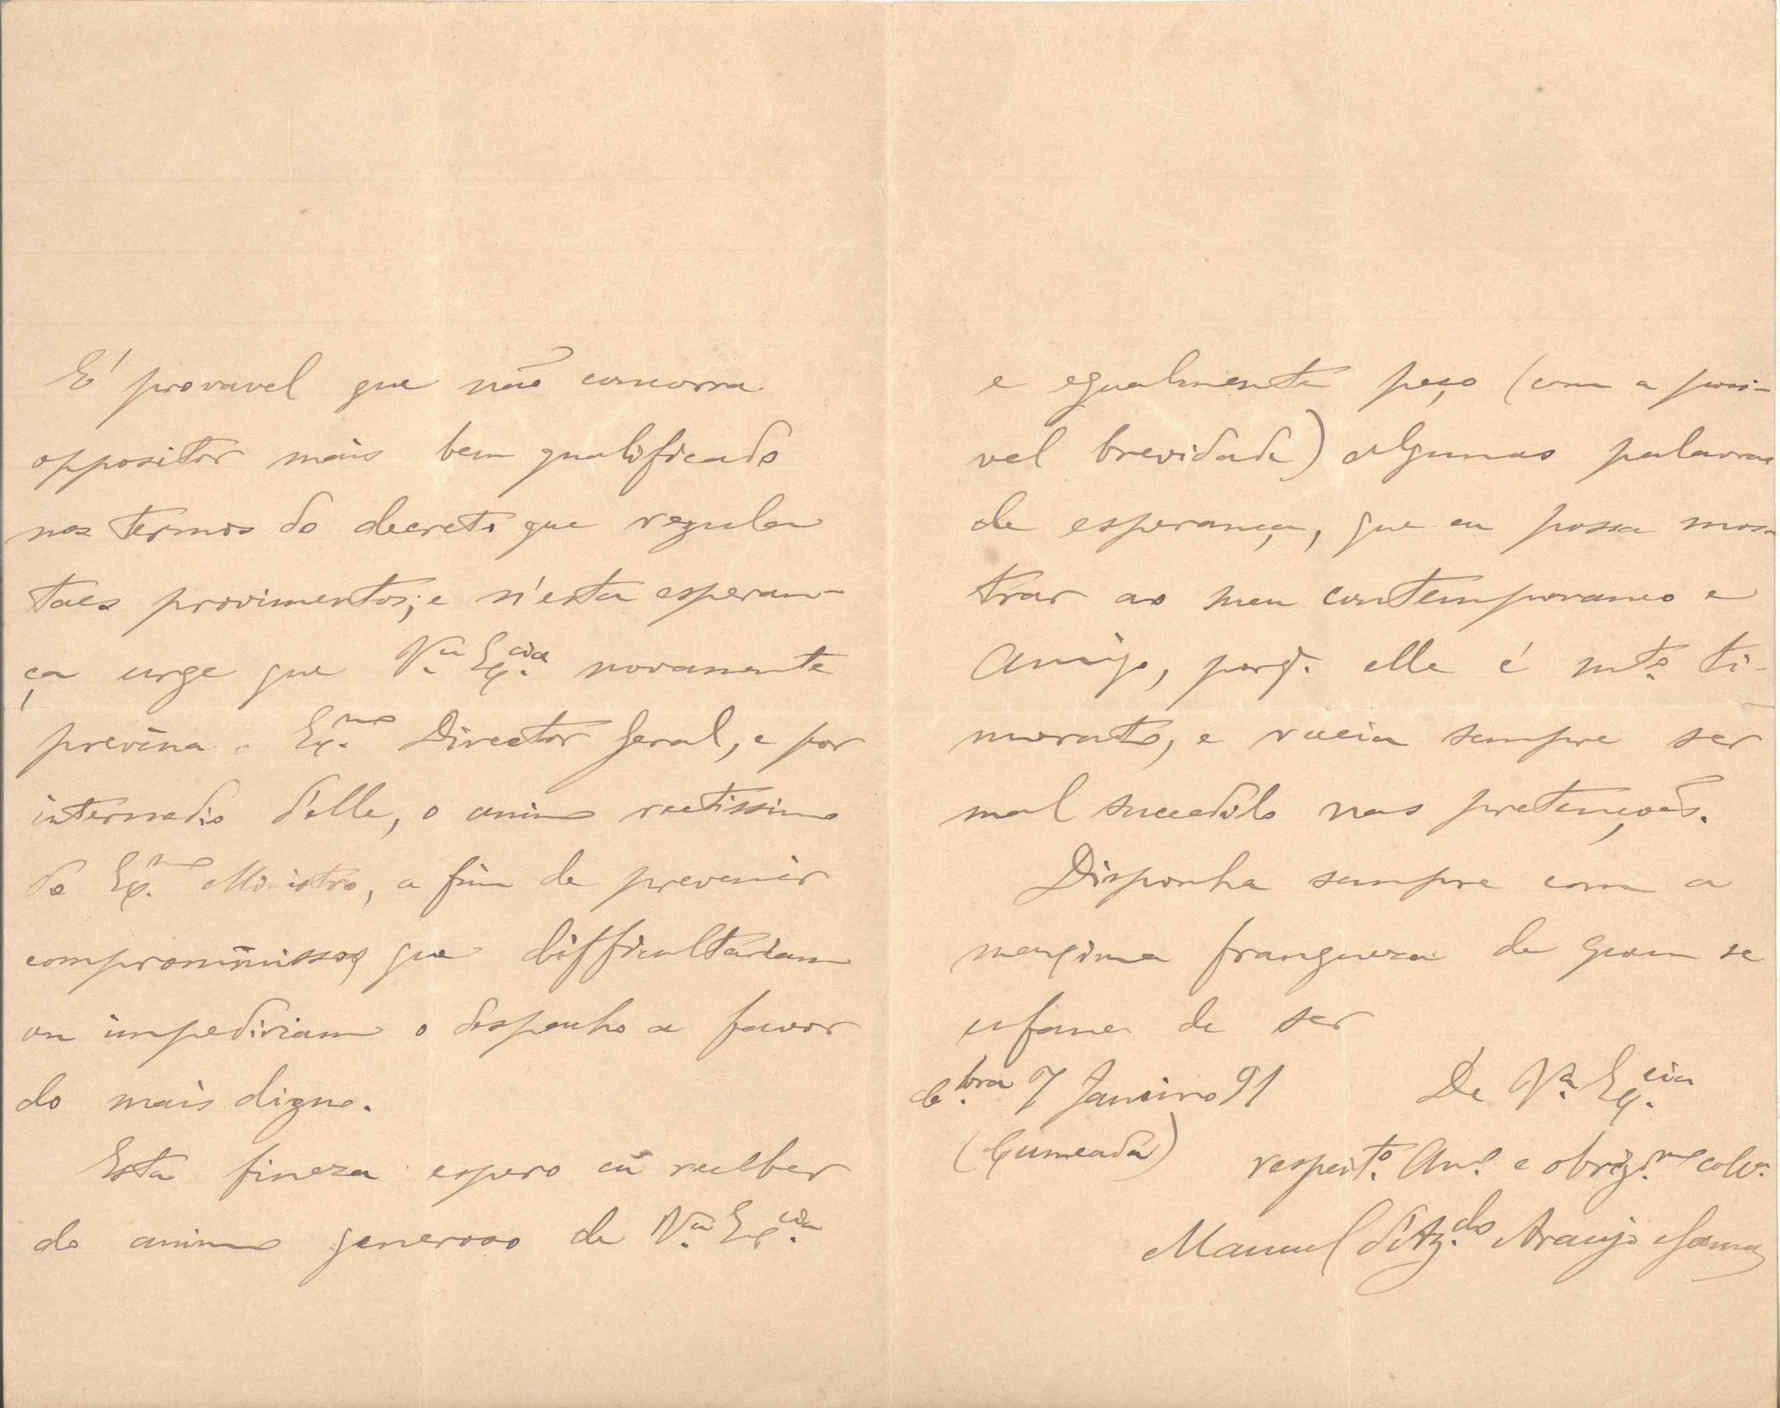 É provavel que não concorra
oppositor mais bem qualificado
nos termos do decreto que regula
taes provimentos; e n'esta esperan-
ça urge que V.ª Ex.cia novamente
previna o Ex.mo Director Geral, e por
intermedio d'elle, o animo rectissimo
do Ex.mo Ministro, a fim de prevenir
compromissos que difficultariam
ou impediriam o despacho a favor
do mais digno.
Esta fineza espero eu receber
do animo generoso de V.ª Ex.cia
e egualmente peço (com a possi-
vel brevidade) algumas palavras
de esperança, que eu possa mos-
trar ao meu contemporaneo e
Amigo, porq. elle é mt.º ti-
morato, e receia sempre ser
mal succedido nas pretenções.
Disponha sempre com a
maxima franqueza de quem se
ufana de ser
C.bra 7 Janeiro 91 De V.ª Ex.cia
(Cumeada)
respeit.º Am.º e obrig.mo coll.
Manuel d'Az.do Araujo Gama